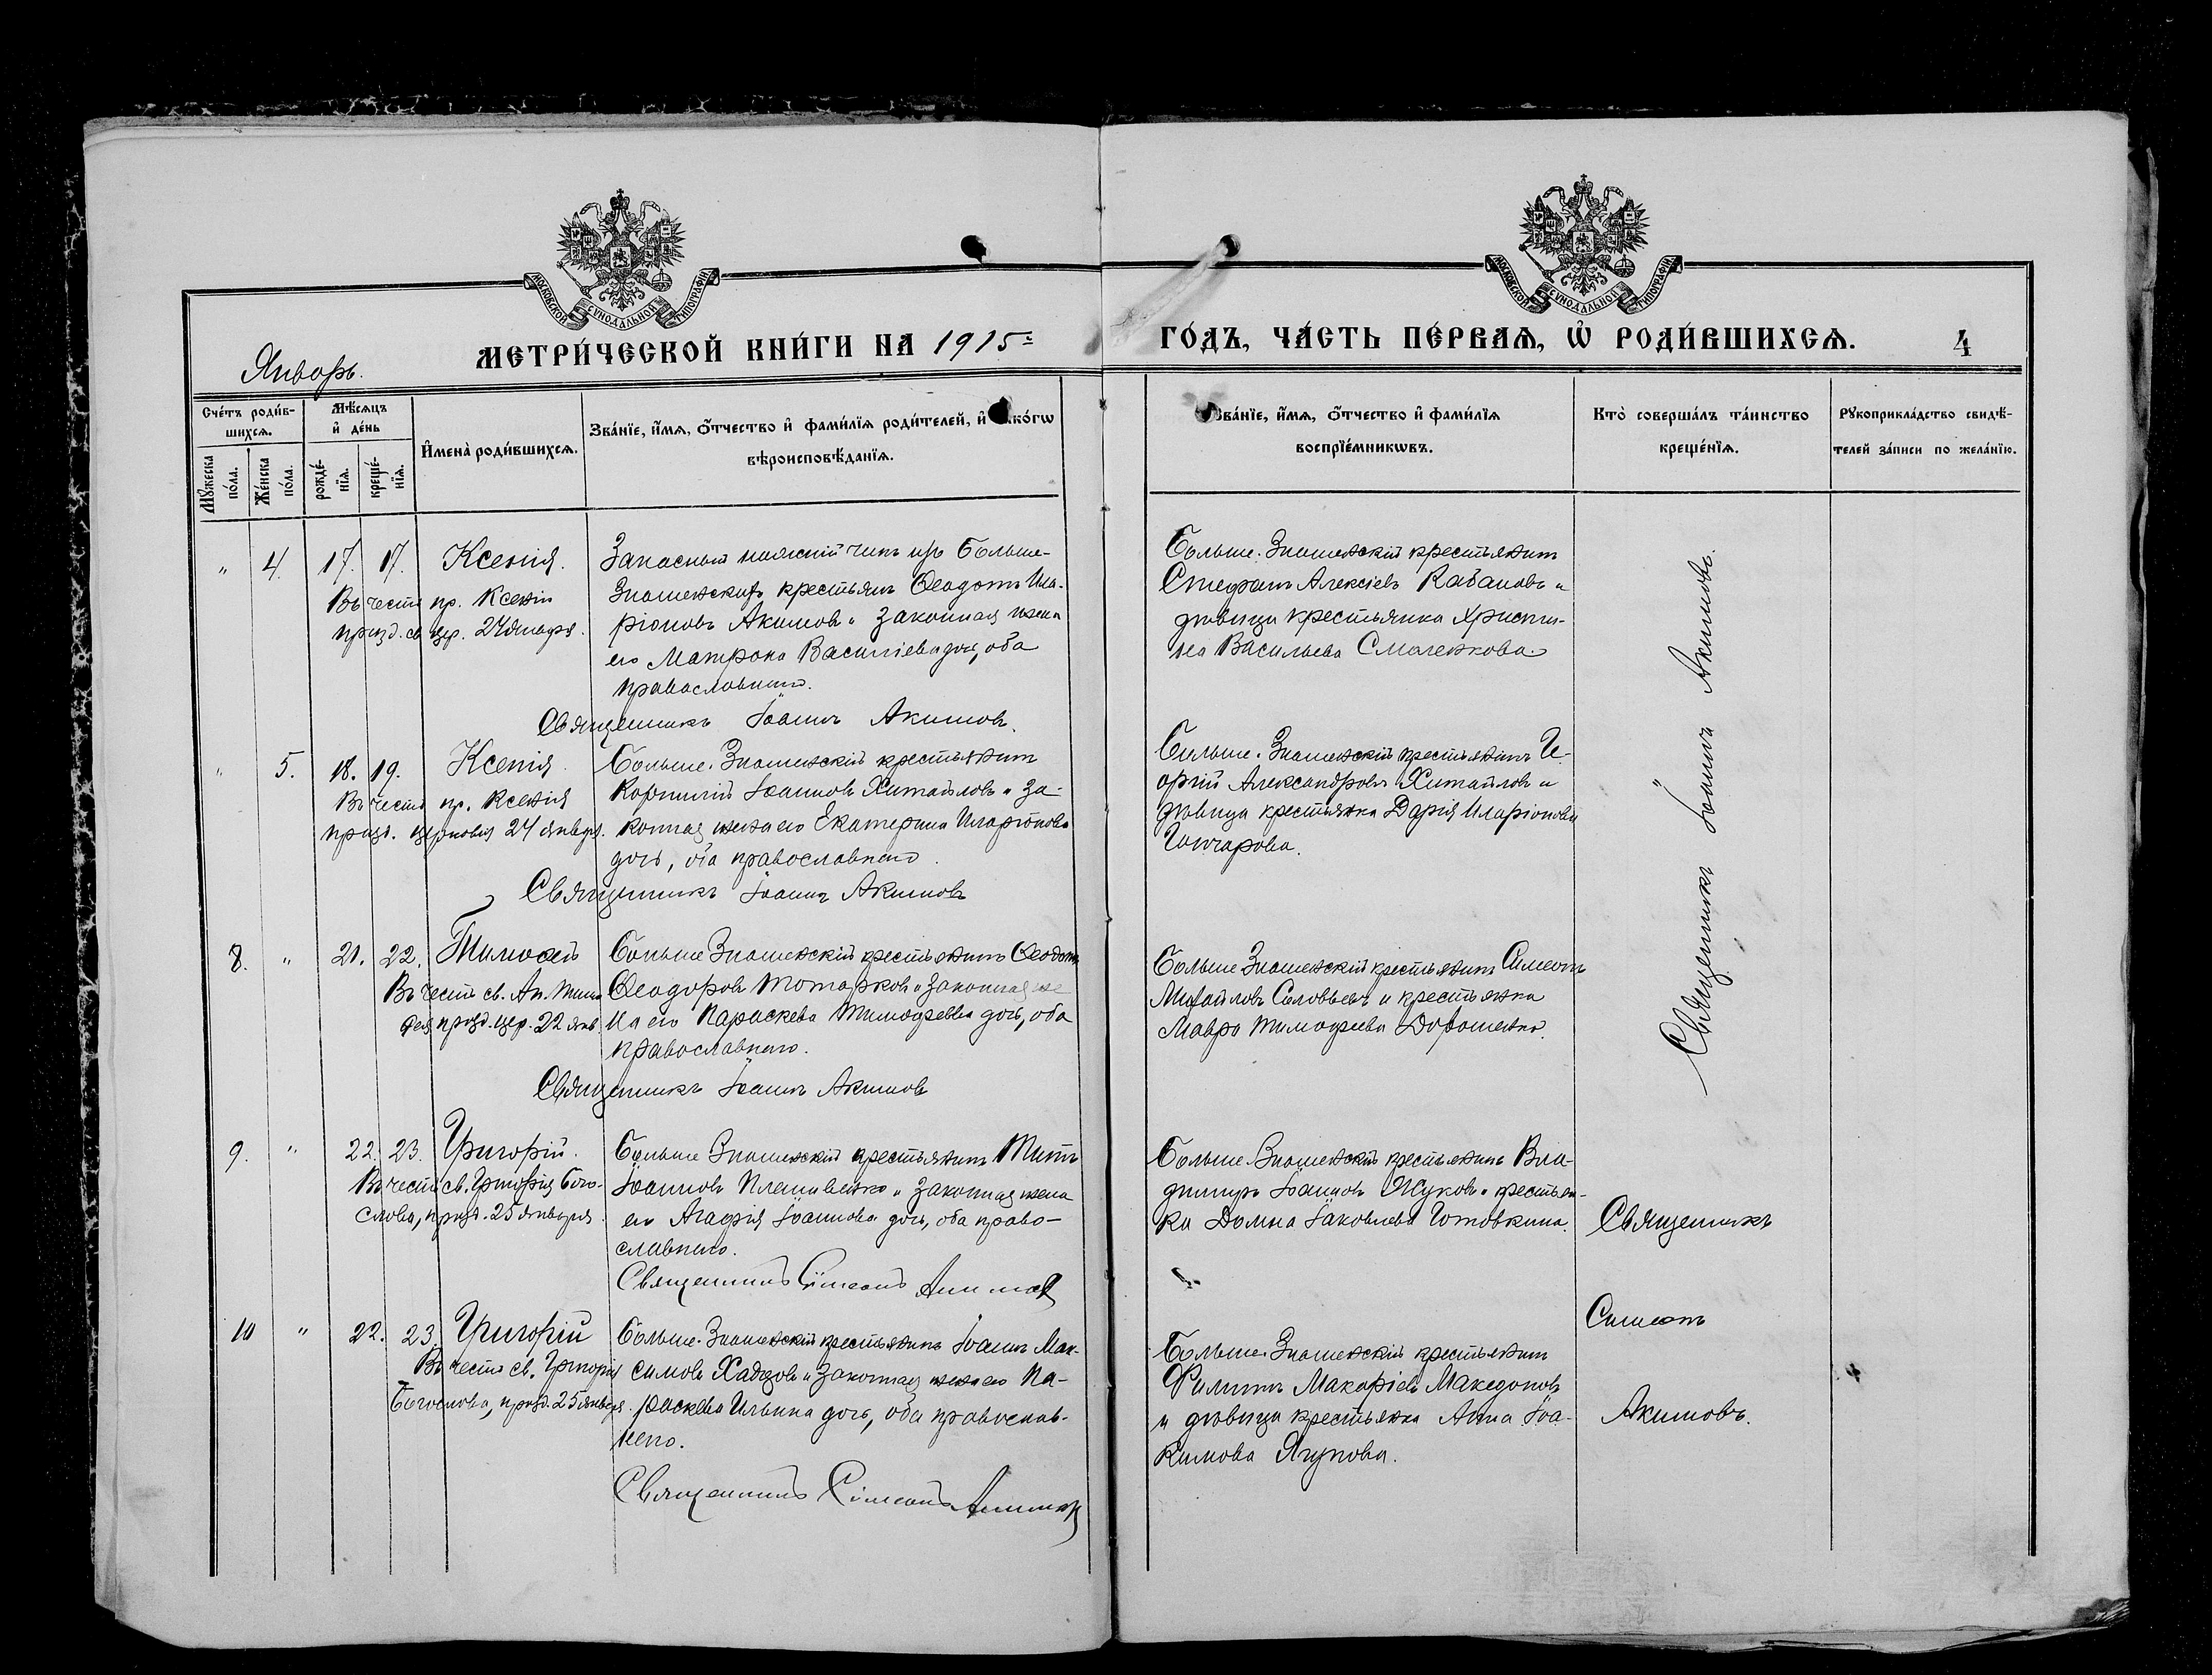 МОСКОВСКОЙ СУНОДАЛЬНОЙ ТИПОГРАФІИ
МОСКОВСКОЙ СУНОДАЛЬНОЙ ТИПОГРАФІИ
Январь.
МЕТРИ́ЧЕСКОЙ КНИ́ГИ НА 1915
ГО́ДЪ, ЧА́СТЬ ПЕ́РВАѦ, Ѡ҆ РОДИ́ВШИХСѦ.
4
Сче́тъ роди́в-
шихсѧ.
Мѣ́сѧцъ
и҆ де́нь
Мꙋ́жеска
по́ла.
Же́нска
по́ла.
рожде́-
нїѧ.
креще́-
нїѧ.
И҆мена̀ роди́вшихсѧ.
Зва́нїе, и҆́мѧ, ѻ҆́тчество и҆ фами́лїѧ роди́телей, и҆ како́гѡ
вѣроисповѣ́данїѧ.
Зва́нїе, и҆́мѧ, ѻ҆́тчество и҆ фами́лїѧ
воспрїе́мникѡвъ.
Кто̀ соверша́лъ та́инство
креще́нїѧ.
Рꙋкоприкла́дство свидѣ́-
телей за́писи по жела́нїю.
" 4. 17. 17. Ксенія.
Въ честь пр. Ксеніи
празд. св. цер. 24 января.
Запасный нижній чинъ изъ Больше-
Знаменскихъ крестьянъ Ѳеодотъ Ила-
ріоновъ Акимовъ и законная жена
его Матрона Василіева дочь, оба
православнаго.
Священникъ Іоаннъ Акимовъ.
Больше-Знаменскій крестьянинъ
Стефанъ Алексіевъ Кабановъ и
дѣвица крестьянка Христи-
на Васильева Смаленкова.
" 5. 18. 19. Ксенія.
Въ честь пр. Ксенія
празд. церковія 24 января.
Больше-Знаменскій крестьянинъ
Корнилій Іоанновъ Химайловъ и за-
конная жена его Екатерина Иларіонова
дочь, оба православнаго.
Священникъ Іоаннъ Акимовъ
Больше-Знаменскій крестьянинъ Ге-
оргій Александровъ Химайловъ и
дѣвица крестьянка Дарія Иларіонова
Гончарова.
8. " 21. 22. Тимоѳей
Въ честь св. Ап. Тимо
ѳея празд. цер. 22 янв.
Больше Знаменскій крестьянинъ Ѳеодотъ
Ѳеодоровъ Томарковъ и законная же
на его Параскева Тимоѳеева дочь, оба
православнаго.
Священникъ Іоаннъ Акимовъ
Больше Знаменскій крестьянинъ Симеонъ
Михайловъ Соловьевъ и крестьянка
Мавра Тимоѳеева Дорошенко.
Священникъ Іоаннъ Акимовъ.
9. " 22. 23. Григорій.
Въ честь св. Григорія Бого-
слова, празд. 25 января.
Больше Знаменскій крестьянинъ Титъ
Іоанновъ Плешивенко и законная жена
его Агафія Іоаннова дочь, оба право-
славнаго.
Священникъ Сѵмеонъ Акимовъ
Больше-Знаменскій крестьянинъ Вла-
димиръ Іоанновъ Жуковъ и крестьян-
ка Домна Іаковлева Готовкина.
Священникъ
Симеонъ
Акимовъ.
10 " 22. 23. Григорій
Въ честь св. Григорія
Богослова, празд. 25 января.
Больше-Знаменскій крестьянинъ Іоаннъ Мак-
симовъ Хадзовъ и законная жена его Па-
раскева Ильина дочь, оба православ-
наго.
Священникъ Сімеонъ Акимовъ
Больше-Знаменскій крестьянинъ
Филиппъ Макаріевъ Македоновъ
и дѣвица крестьянка Анна Іоа-
кимова Ягупова.